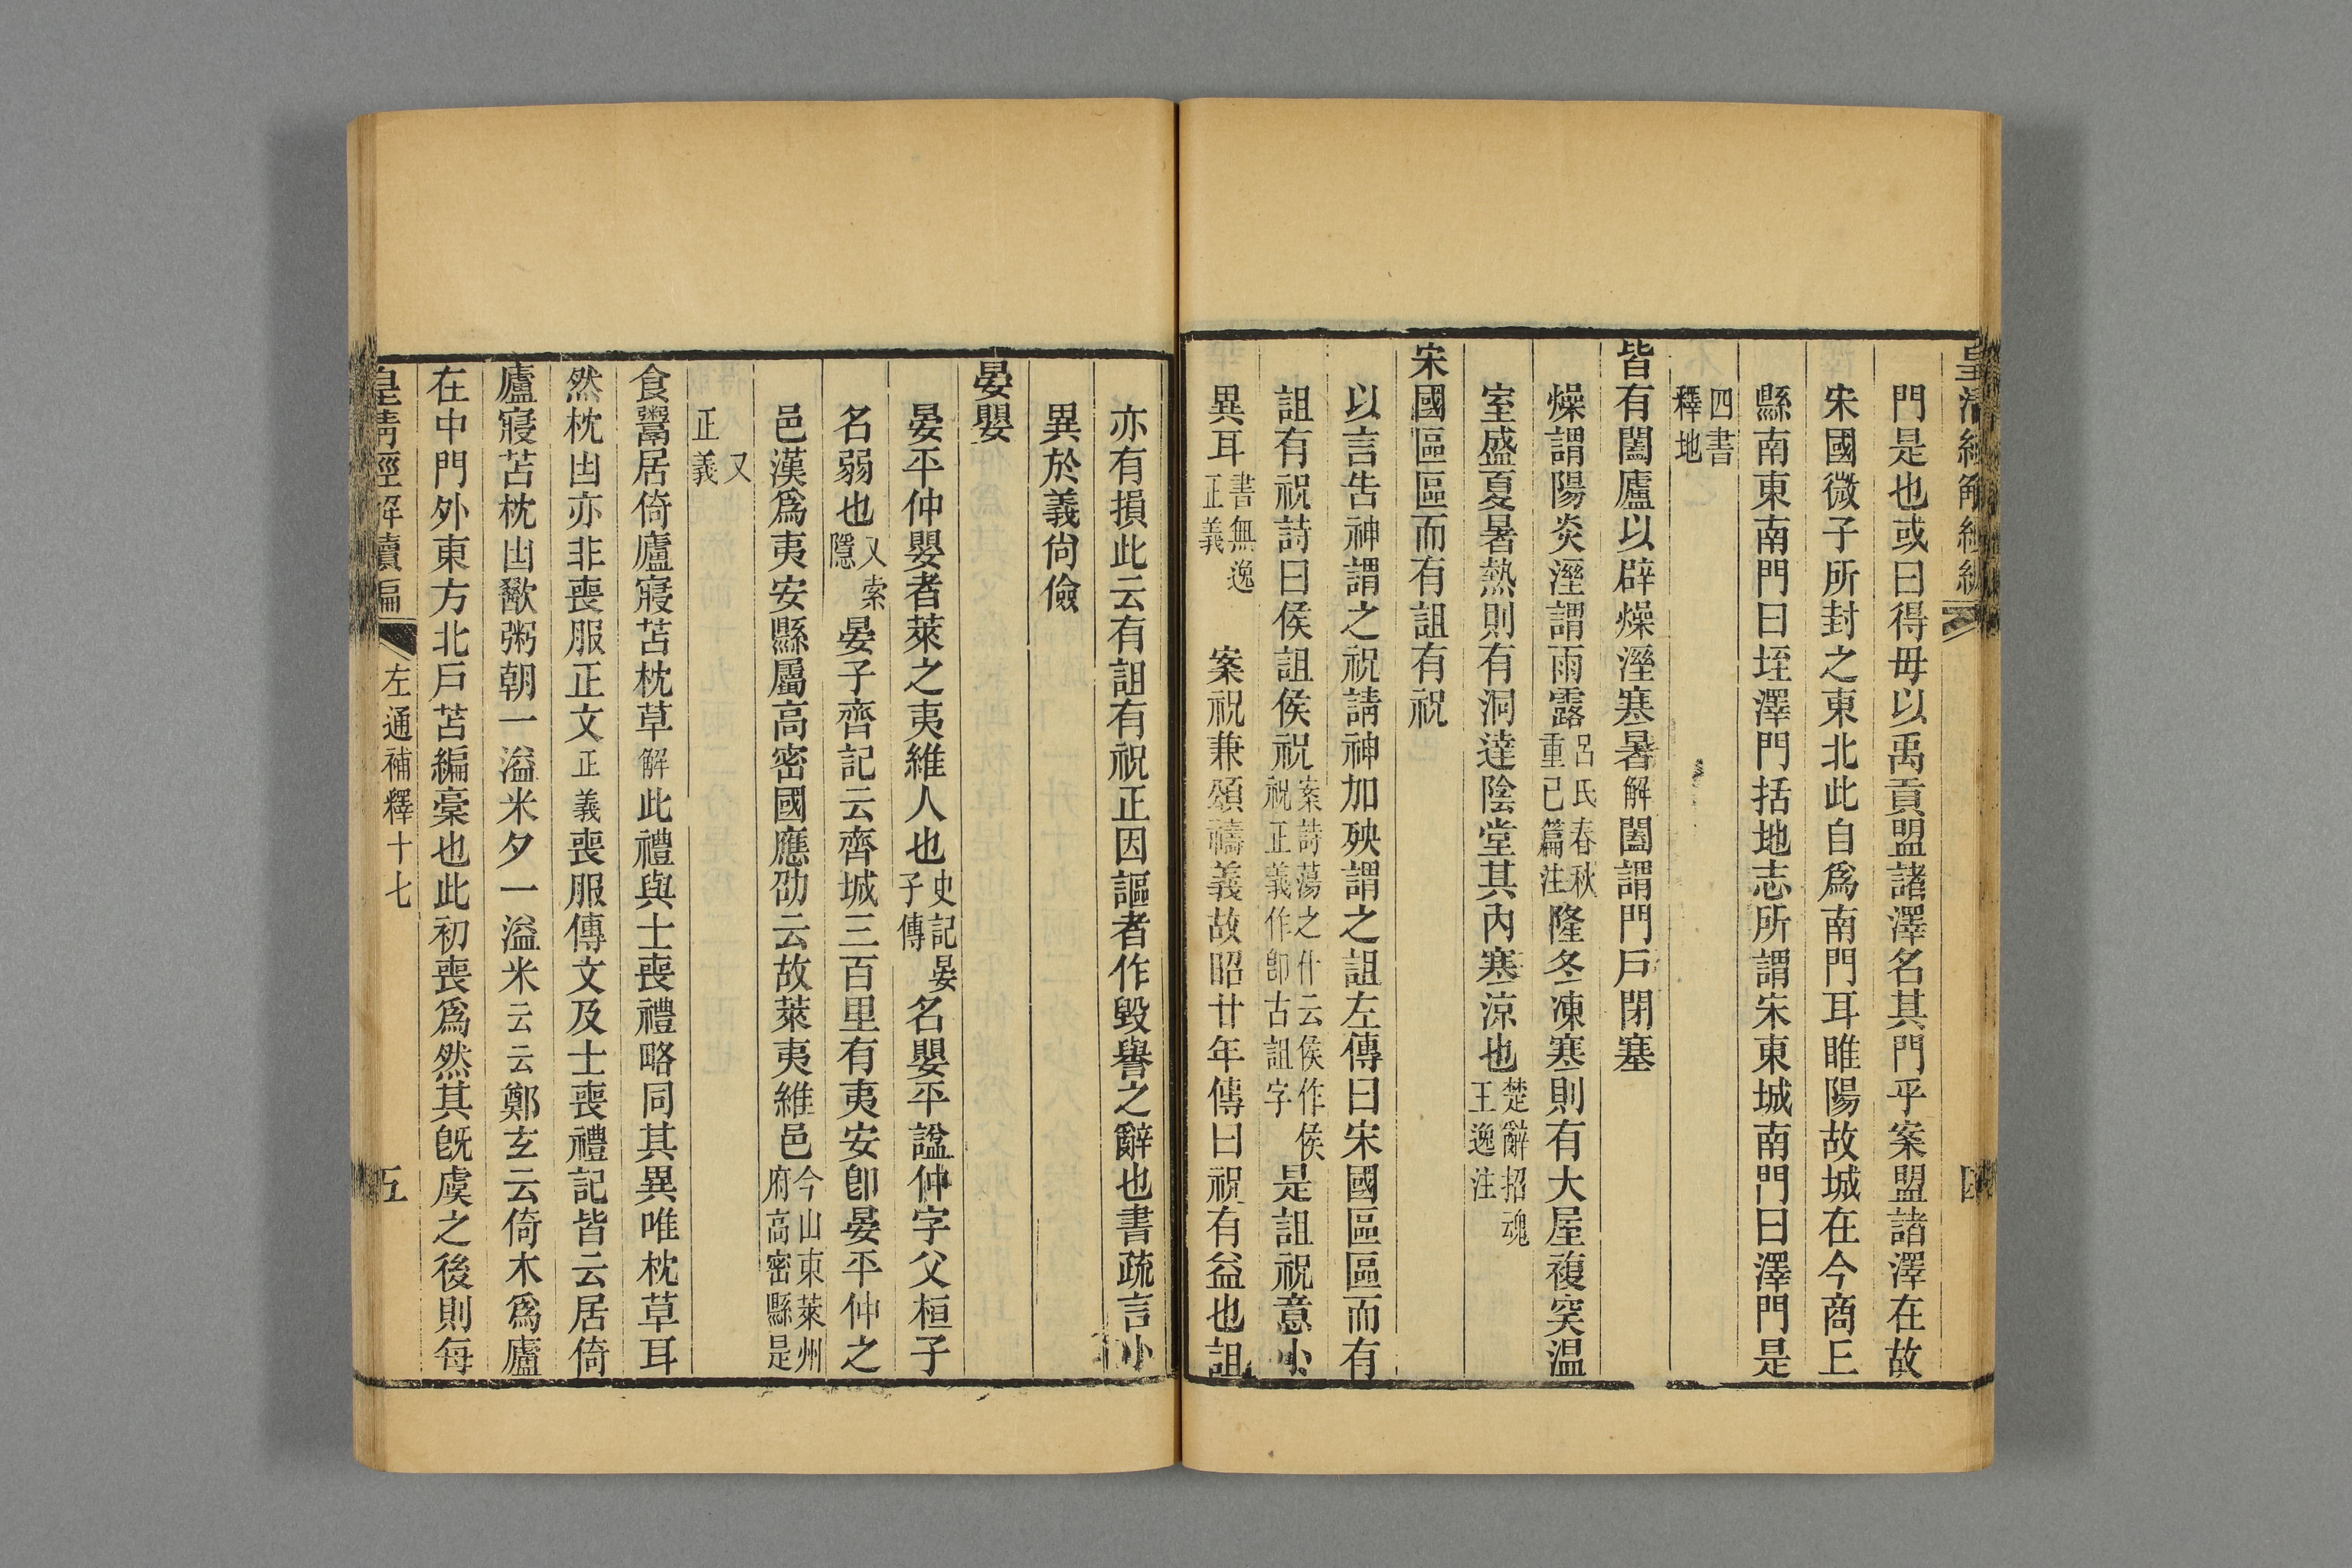 皇清經解續編
四
門是也或曰得毋以禹貢盟諸澤名其門乎案盟諸澤在故
宋國微子所封之東北此自爲南門耳睢陽故城在今商丘
縣南東南門曰垤澤門括地志所謂宋東城南門曰澤門是
四書
釋地
皆有闔廬以辟燥溼寒暑解闔謂門戶閉塞
燥謂陽炎溼謂雨露呂氏春秋重己篇注隆冬凍寒則有大屋複突温
室盛夏暑熱則有洞達陰堂其內寒涼也楚辭招魂王逸注
宋國區區而有詛有祝
以言告神謂之祝請神加殃謂之詛左傳曰宋國區區而有
詛有祝詩曰侯詛侯祝案詩蕩之什云侯作侯祝正義作卽古詛字是詛祝意小
異耳書無逸正義案祝兼頌禱義故昭廿年傳曰祝有益也詛
亦有損此云有詛有祝正因謳者作毀譽之辭也書疏言小
異於義尙儉
晏嬰
晏平仲嬰者萊之夷維人也史記晏子傳名嬰平諡仲字父桓子
名弱也又索隱晏子齊記云齊城三百里有夷安卽晏平仲之
邑漢爲夷安縣屬高密國應劭云故萊夷維邑今山東萊州府高密縣是
又
正義
食鬻居倚廬寢苫枕草解此禮與士喪禮略同其異唯枕草耳
然枕凷亦非喪服正文正義喪服傳文及士喪禮記皆云居倚
廬寢苫枕凷歠粥朝一溢米夕一溢米云云鄭玄云倚木爲廬
在中門外東方北戶苫編稾也此初喪爲然其旣虞之後則每
皇清經解續編
左通補釋十七
五